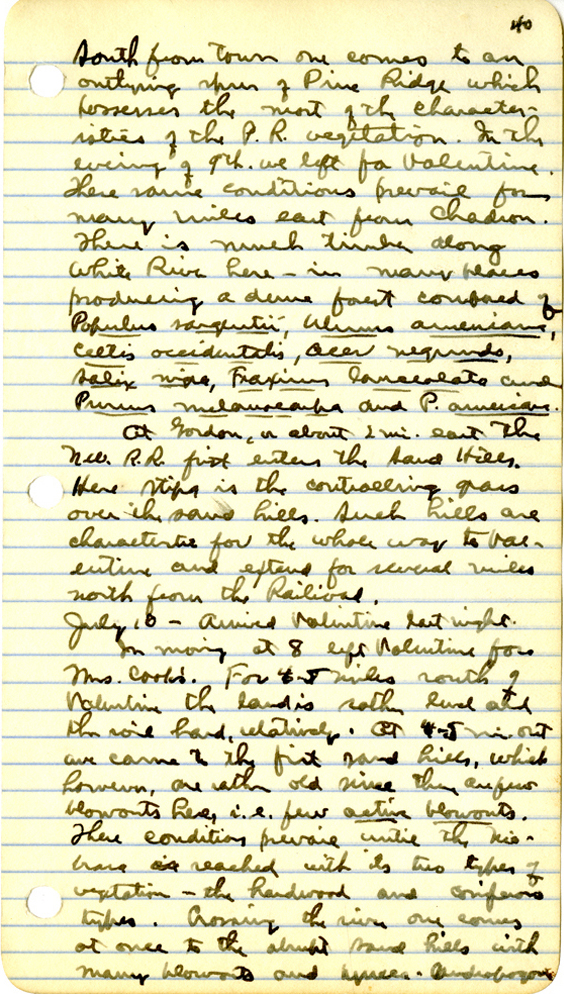 40
South from town one comes to an
outlying spur of Pine Ridge which
possesses the most of the character-
istics of the P. R. vegetation. In the
evening of 9th. we left for Valentine.
These same conditions prevail for
many miles east from Chadron.
There is much timber along
White River here - in many places
producing a dense forest composed of
Populus sargentii, Ulmus americana,
Celtis occidentalis, Acer negundo,
Salix nigra, Fraxinus lanceolata and
Prunus melanocarpa and P. americana.
At Gordon, or about 2 mi. east the
N.W. R.R. first enters the Sand Hills.
Here Stipa is the controlling grass
over the sand hills. Such hills are
characteristic for the whole way to Val-
entine and extend for several miles
north from the Railroad.
July 10 - Arrived Valentine last night.
In morning at 8 left Valentine for
Mrs. Cook's. For 4-5 miles south of
Valentine the land is rather level and
the soil hard, relatively. At 4-5 mi. out
we came to the first sand hills, which
however, are rather old since there are few
blowouts here, i.e. few active blowouts.
These conditions prevail until the Nio-
brara is reached with its two types of
vegetation - the hardwood and coniferous
types. Crossing the river one comes
at once to the abrupt sand hills with
many blowouts and yuccas. Andropogon